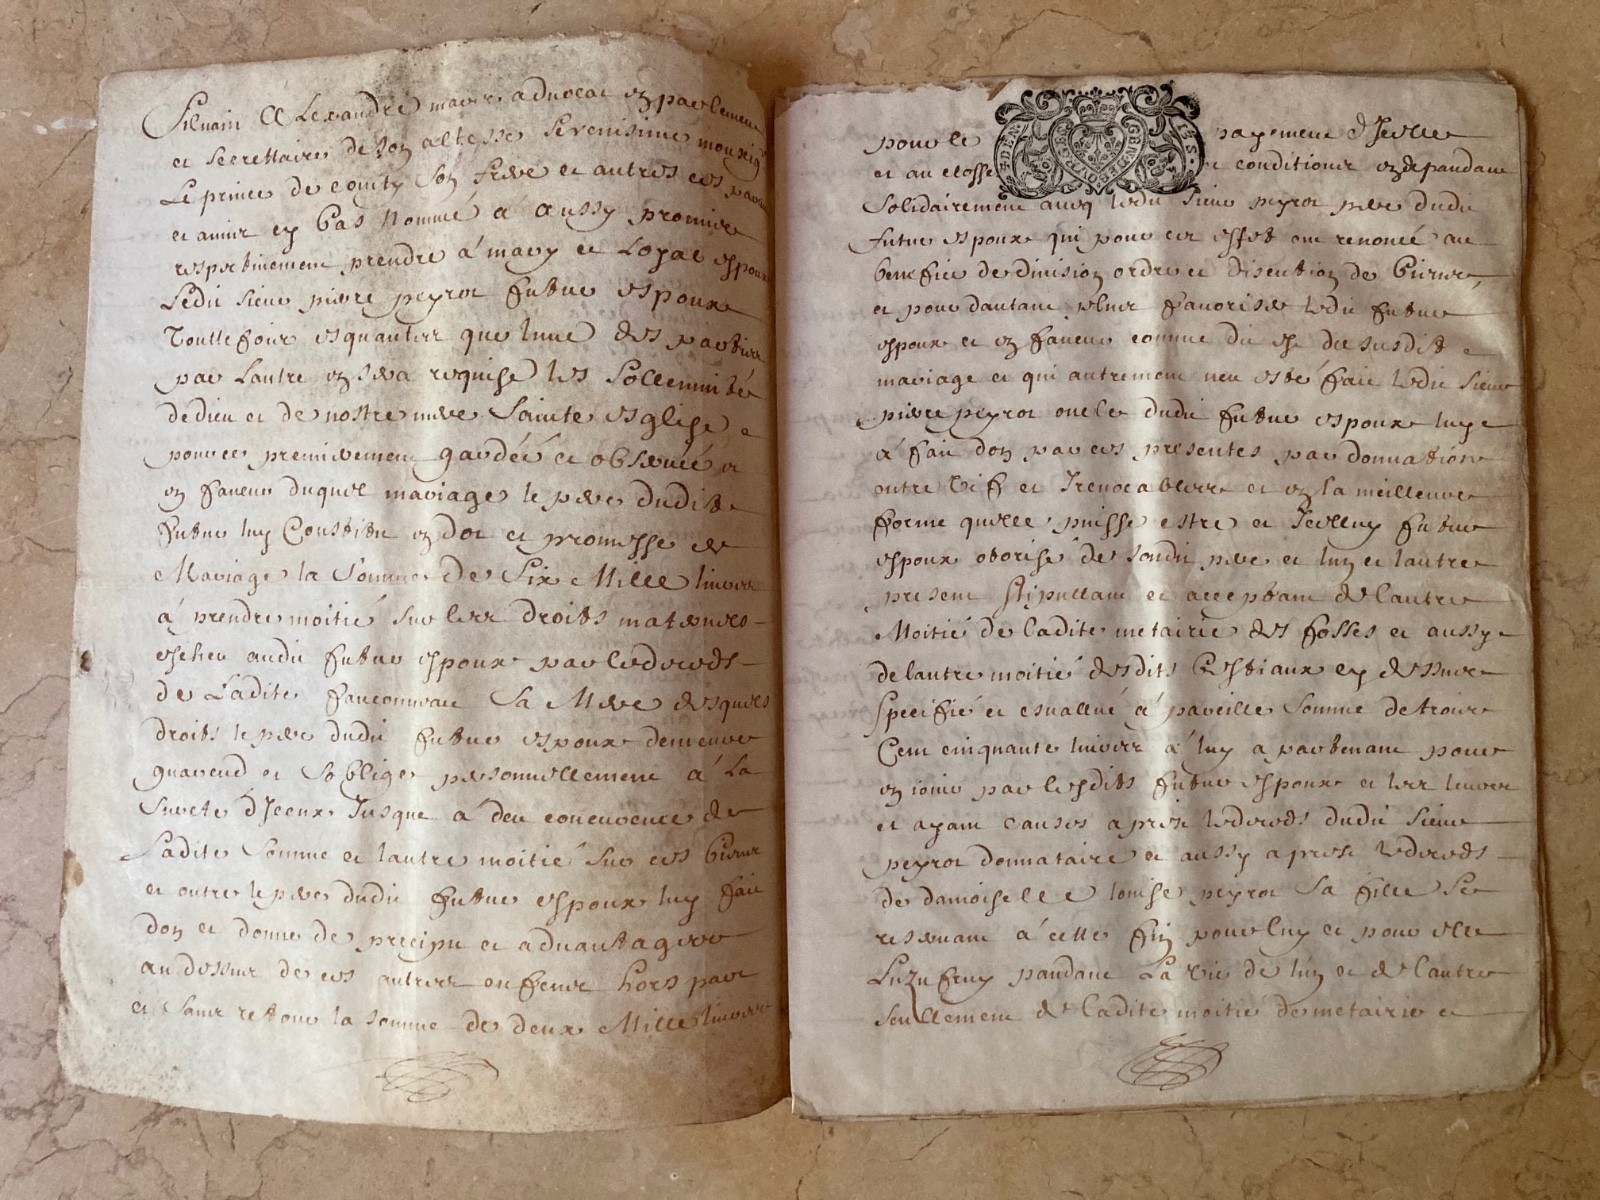 Siluain Allexandre mavre aduocat en parlement
et secrettaire de son altesse serenisime monseig
Le prince de conty son frere et autres ces
et amis cy bas Nommé a aussy promise
respectiuement prendre á mary et Loyal espoux
Ledit sieur pierre peyrot futur espoux
Touttefois esquantes que lune des parties
par Lautre en sera requise les sollemnités
de dieu et de nostre mere Sainte esglise
pour ce premierement gardéé et obseruéé
en faueur duquel mariage le pere dudit
futur luy Constitu en dot et promesse de
Mariage la somme de Six Mille liures
á prendre moitié sur les droits maternels
escheu audit futur espoux par le deceds
de Ladite fauconneau sa Mere desquels
droits le pere dudit futur espoux demeure
guarend et soblige personnellement á La
Sureté d'Iceux Jusque á deu concurence de
Ladite Somme et lautre moitié sur ces biens
et outre le pere dudit futur espoux luy fait
don et donne de precipu et aduantage
au dessur de ces autres enfens hors part
et sans retour la somme de deux Mille liures
pour le payement d'Icelle
et au closse et conditions en depandant
Solidairement aueq ledit sieur peyrot pere dudit
futur espoux qui pour cet effet ont renoncé au
benefice de diuision ordre et discution de biens
et pour dautant plus fauorise ledit futur
espoux et en faueur comme dit est du susdit
mariage et qui autrement neu esté fait ledit sieur
pierre peyrot oncle dudit futur espoux luy
a fait don par ces presentes par donnation
entre vif et Ireuocables et en la meilleure
forme quelle puisse estre et Icelluy futur
espoux otorisé de sondit pere et lun et lautre
present stipullant et acceptant de lautre
Moitié de ladite metairie des fosses et aussy
de lautre moitié desdits bestiaux cy dessur
specifié et esuallué á pareille somme de trois
Cent cinquante liures á luy apartenant pour
en iouir par lesdits futur espoux et les leurs
et ayant causes apres le deceds dudit sieur
peyrot donnataire et aussy apres le deceds
de damoiselle louise peyrot sa fille se
reseruant á cette fin pour luy et pour elle
Luzufruy pandant La vie de lun et de lautre
seullement de ladite moitié de metairie et
GEN DE BOVRGES